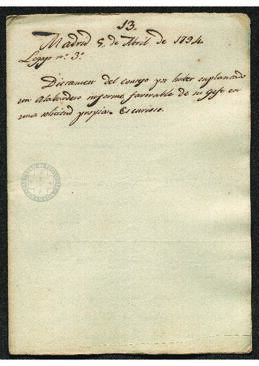 13.
Madrid 5. de Abril de 1794.
Legajo n.º 3.º
Dictamen del consejo p.r haber suplantado
un Alabardero informe favorable de su Gefe en
una solicitud propia. Es curioso.